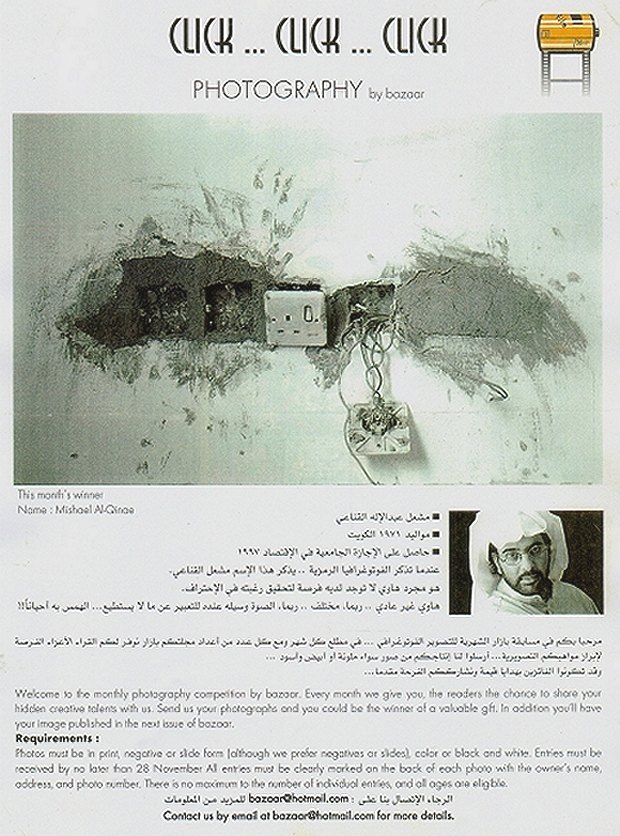 CLICK ... CLICK ... CLICK
PHOTOGRAPHY by bazaar
This month's winner
Name : Mishael Al-Qinae
■ مشعل عبدالإله القناعي
■ مواليد ١٩٧١ الكويت
■ حاصل على الإجازة الجامعية في الإقتصاد ١٩٩٧
عندما تذكر الفوتوغرافيا الرمزية .. يذكر هذا الإسم مشعل القناعي.
هو مجرد هاوي لا توجد لديه فرصة لتحقيق رغبته في الإحتراف.
هاوي غير عادي .. ربما، مختلف .. ربما، الصوة وسيله عنده للتعبير عن ما لا يستطيع... الهمس به أحياناً!!
مرحبا بكم في مسابقة بازار الشهرية للتصوير الفوتوغرافي ... في مطلع كل شهر ومع كل عدد من أعداد مجلتكم بازار نوفر لكم القراء الأعزاء الفرصة
لإبراز مواهبكم التصويرية... أرسلوا لنا إنتاجكم من صور سواء ملونة أو أبيض وأسود ...
وقد تكونوا الفائزين بهدايا قيمة ونشارككم الفرحة مقدماً...
Welcome to the monthly photography competition by bazaar. Every month we give you, the readers the chance to share your
hidden creative talents with us. Send us your photographs and you could be the winner of a valuable gift. In addition you'll have
your image published in the next issue of bazaar.
Requirements :
Photos must be in print, negative or slide form (although we prefer negatives or slides), color or black and white. Entries must be
received by no later than 28 November All entries must be clearly marked on the back of each photo with the owner's name,
address, and photo number. There is no maximum to the number of individual entries, and all ages are eligible.
الرجاء الإتصال بنا على : bazaar@hotmail.com للمزيد من المعلومات
Contact us by email at bazaar@hotmail.com for more details.